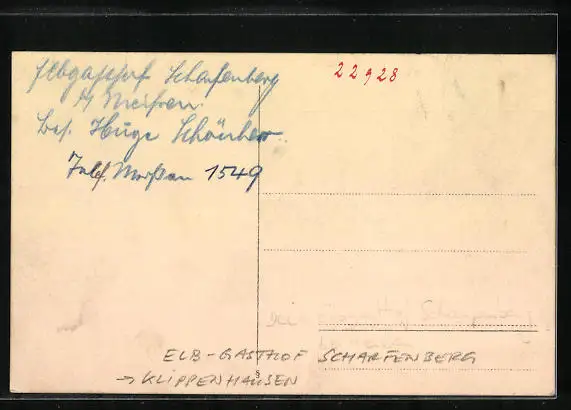 Elbgasthof Scharfenberg
b/ Meißen.
Bes. Hugo Schönherr.
Telef. Meißen 1549
22928
ELB-GASTHOF SCHARFENBERG
→ KLIPPENHAUSEN